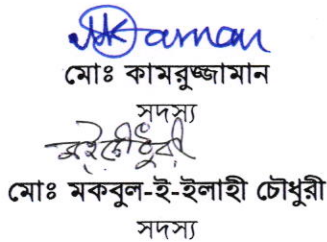 মোঃ কামরুজ্জামান
সদস্য
মোঃ মকবুল-ই-ইলাহী চৌধুরী
সদস্য